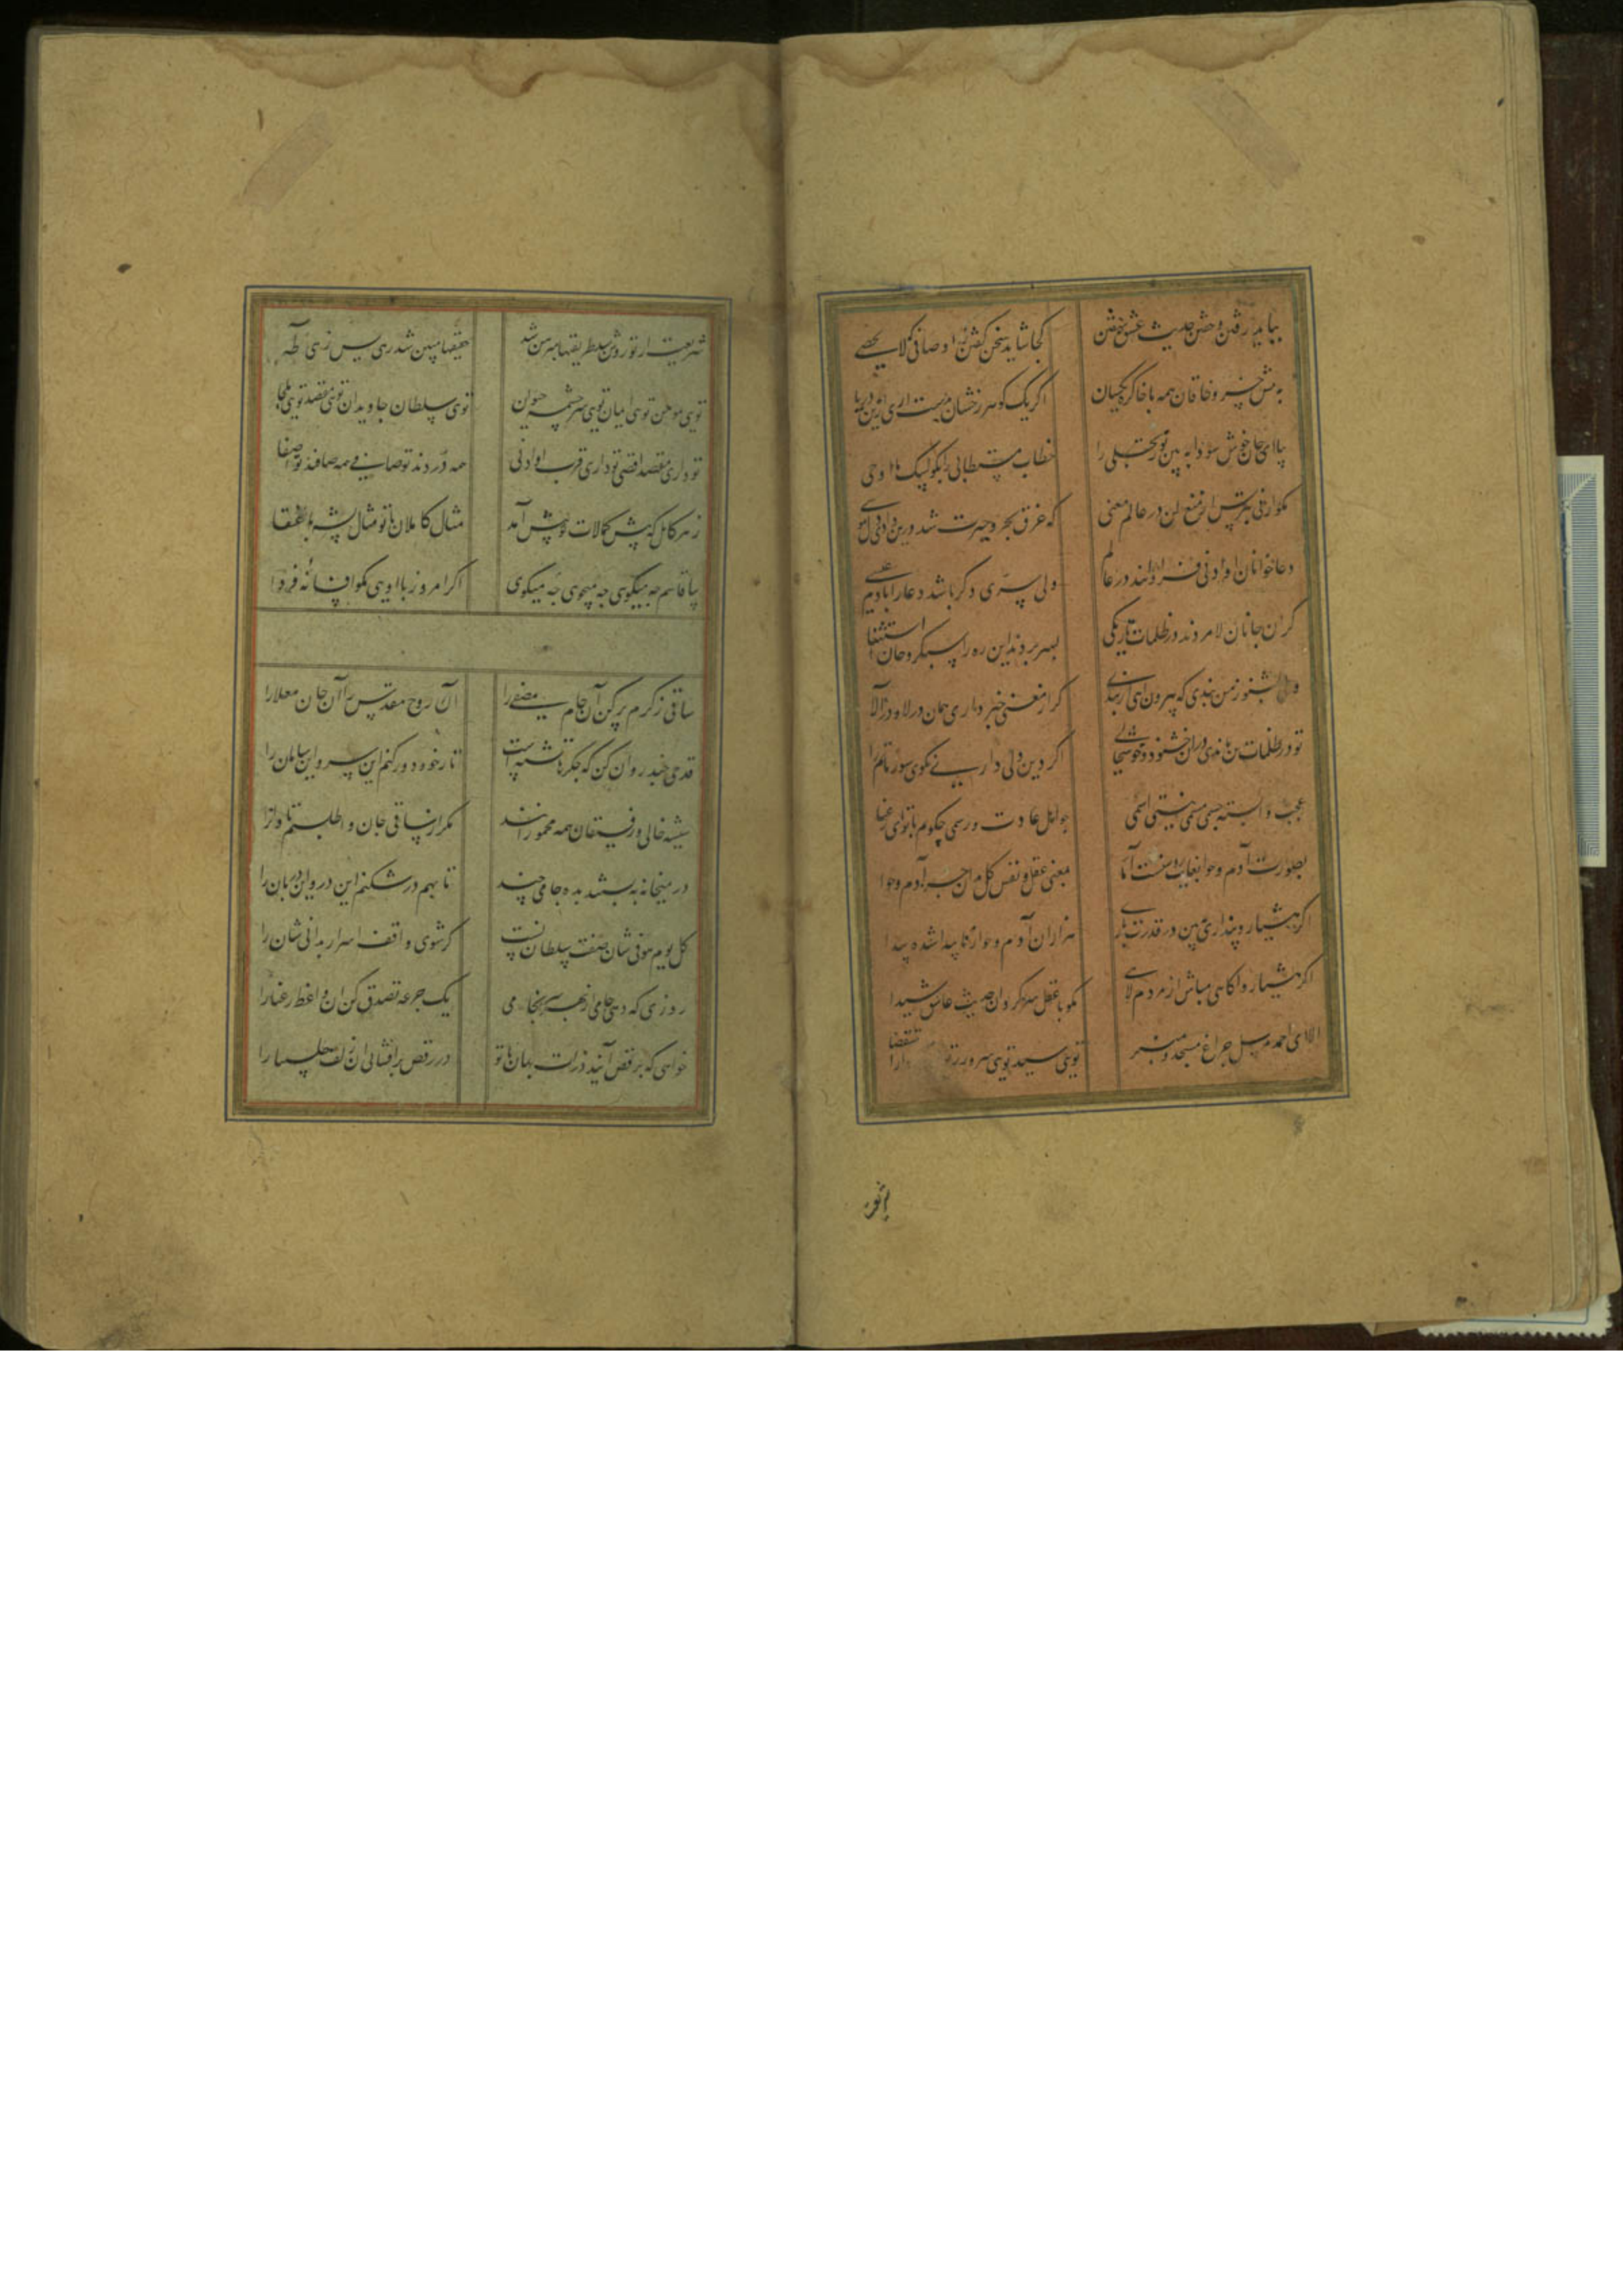 بباید رفتن و خفتن حدیث عشق نهفتن کجا شاید سخن گفتن ز اوصافی که لایحصی
به پیش خسرو خاقان همه با خاک ره یکسان اگر یک گوهر رخشان بدست اری ازین دریا
بیا ای جان خوش سودا به بین نور تجلی را خطاب مستطابی را بگو لبیک ما اوحی
مگو ارنی بترس از منع لن در عالم معنی که غرق بحر حیرت شد درین وادی دل موسی
دعاخوانان او ادنی فراوانند در عالم ولی سری دگر باشد دعا را با دم عیسی
گران جانان لا مردند در ظلمات تاریکی بسر بردند این ره را سبکروحان استثنا
بشنو ز من پندی که بیرون ای ازین بندی گر از معنی خبر داری همان در لا و در الا
تو در ظلمات تن ماندی دران خشنود و خوشحالی اگر دین و دلی داری نمی گوی سوی ما را
عجب وابسته جسمی مسمی نیستی اسمی چو اهل عادت و رسمی چگویم با تو ای رعنا
بصورت آدم و حوا بغایت روشنست آما بمعنی عقل و نفس کل مدان جز آدم و حوا
اگر هشیار و پنداری ببین در قدرت باری هزاران آدم و حوا ز ناپیدا شده پیدا
اگر هشیار و اگاهی مباش از مردم لاهی مگو با عقل سرگردان حدیث عاشق شیدا
الا ای احمد مرسل چراغ مسجد و منبر تویی سید تویی سرور
شریعت از تو روشن شد طریقتها مبرهن شد حقیقتها مبین شد زهی یس زهی طه
توی مومن توی ایمان توی سرچشمه حیوان توی سلطان جاویدان توی مقصد توی ملجا
تو داری مقصد اقصی تو داری قرب او ادنی همه دردند تو صافی همه صافند تو اصفا
ز هر کامل که پیش کمالات تو پیش آمد مثال کاملان با تو مثال پشه با عنقا
بیا قاسم چه میگوی چه میجوی چه میگوی اگر امروز با اویی مگو افسانه فردا
ساقی ز کرم پر کن آن جام مصفی را آن روح مقدس را آن جان معلا را
قدحی چند روان کن که جگرها تشنه است تا ز خود دور کنم این سر و این سامان را
شیشه خالی و رفیقان همه مخمورانند مگر از ساقی جان واطلبم تاوانرا
در میخانه به بستند بده جامی چند تا بهم درشکنم این در و این دربان را
کل یوم هو فی شان صفت سلطانست گر شوی واقف اسرار بدانی شان را
روزی که دهی جامی از بهر سرانجامی یک جرعه تصدق کن آن واعظ رعنا را
خواهی که برقص آیند ذرات جهان با تو در رقص برافشانی آن زلف چلیپا را
شریعت